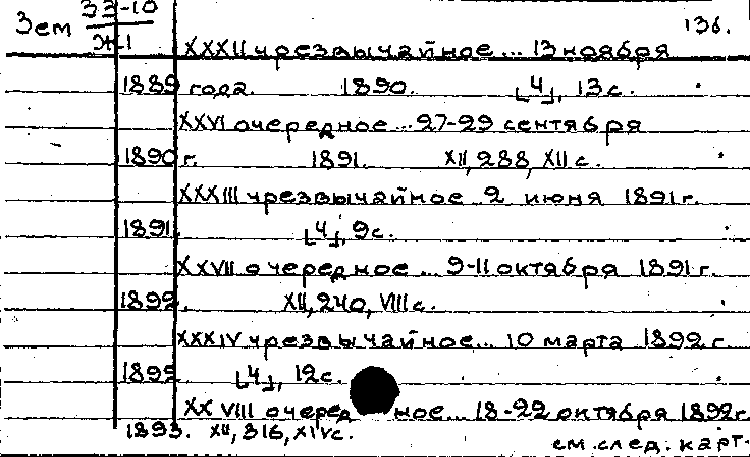 Зем 33-10 136.
Ж-1
XXXII чрезвычайное... 13 ноября
1889 года. 1890. [4], 13с.
XXVI очередное... 27-29 сентября
1890 г. 1891. XII, 288, XII с.
XXXIII чрезвычайное 2 июня 1891 г.
1891. [4], 9с.
XXVII очередное... 9-11 октября 1891 г.
1892. XII, 240, VIII с.
XXXIV чрезвычайное... 10 марта 1892 г.
1892. [4], 12с.
XXVIII очередное... 18-22 октября 1892 г.
1893. XII, 316, XIV с.
см. след. карт.